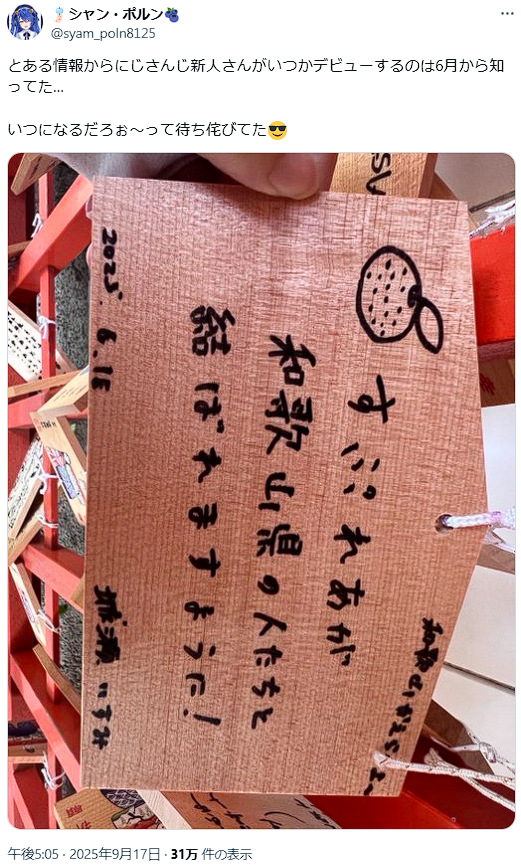 シャン・ポルン
@syam_poln8125
とある情報からにじさんじ新人さんがいつかデビューするのは6月から知ってた...
いつになるだろぉ〜って待ち侘びてた😎
すぷれあが
和歌山県の人たちと
結ばれますように!
2025.6.18
城瀬いすみ
午後5:05 · 2025年9月17日 · 31万 件の表示